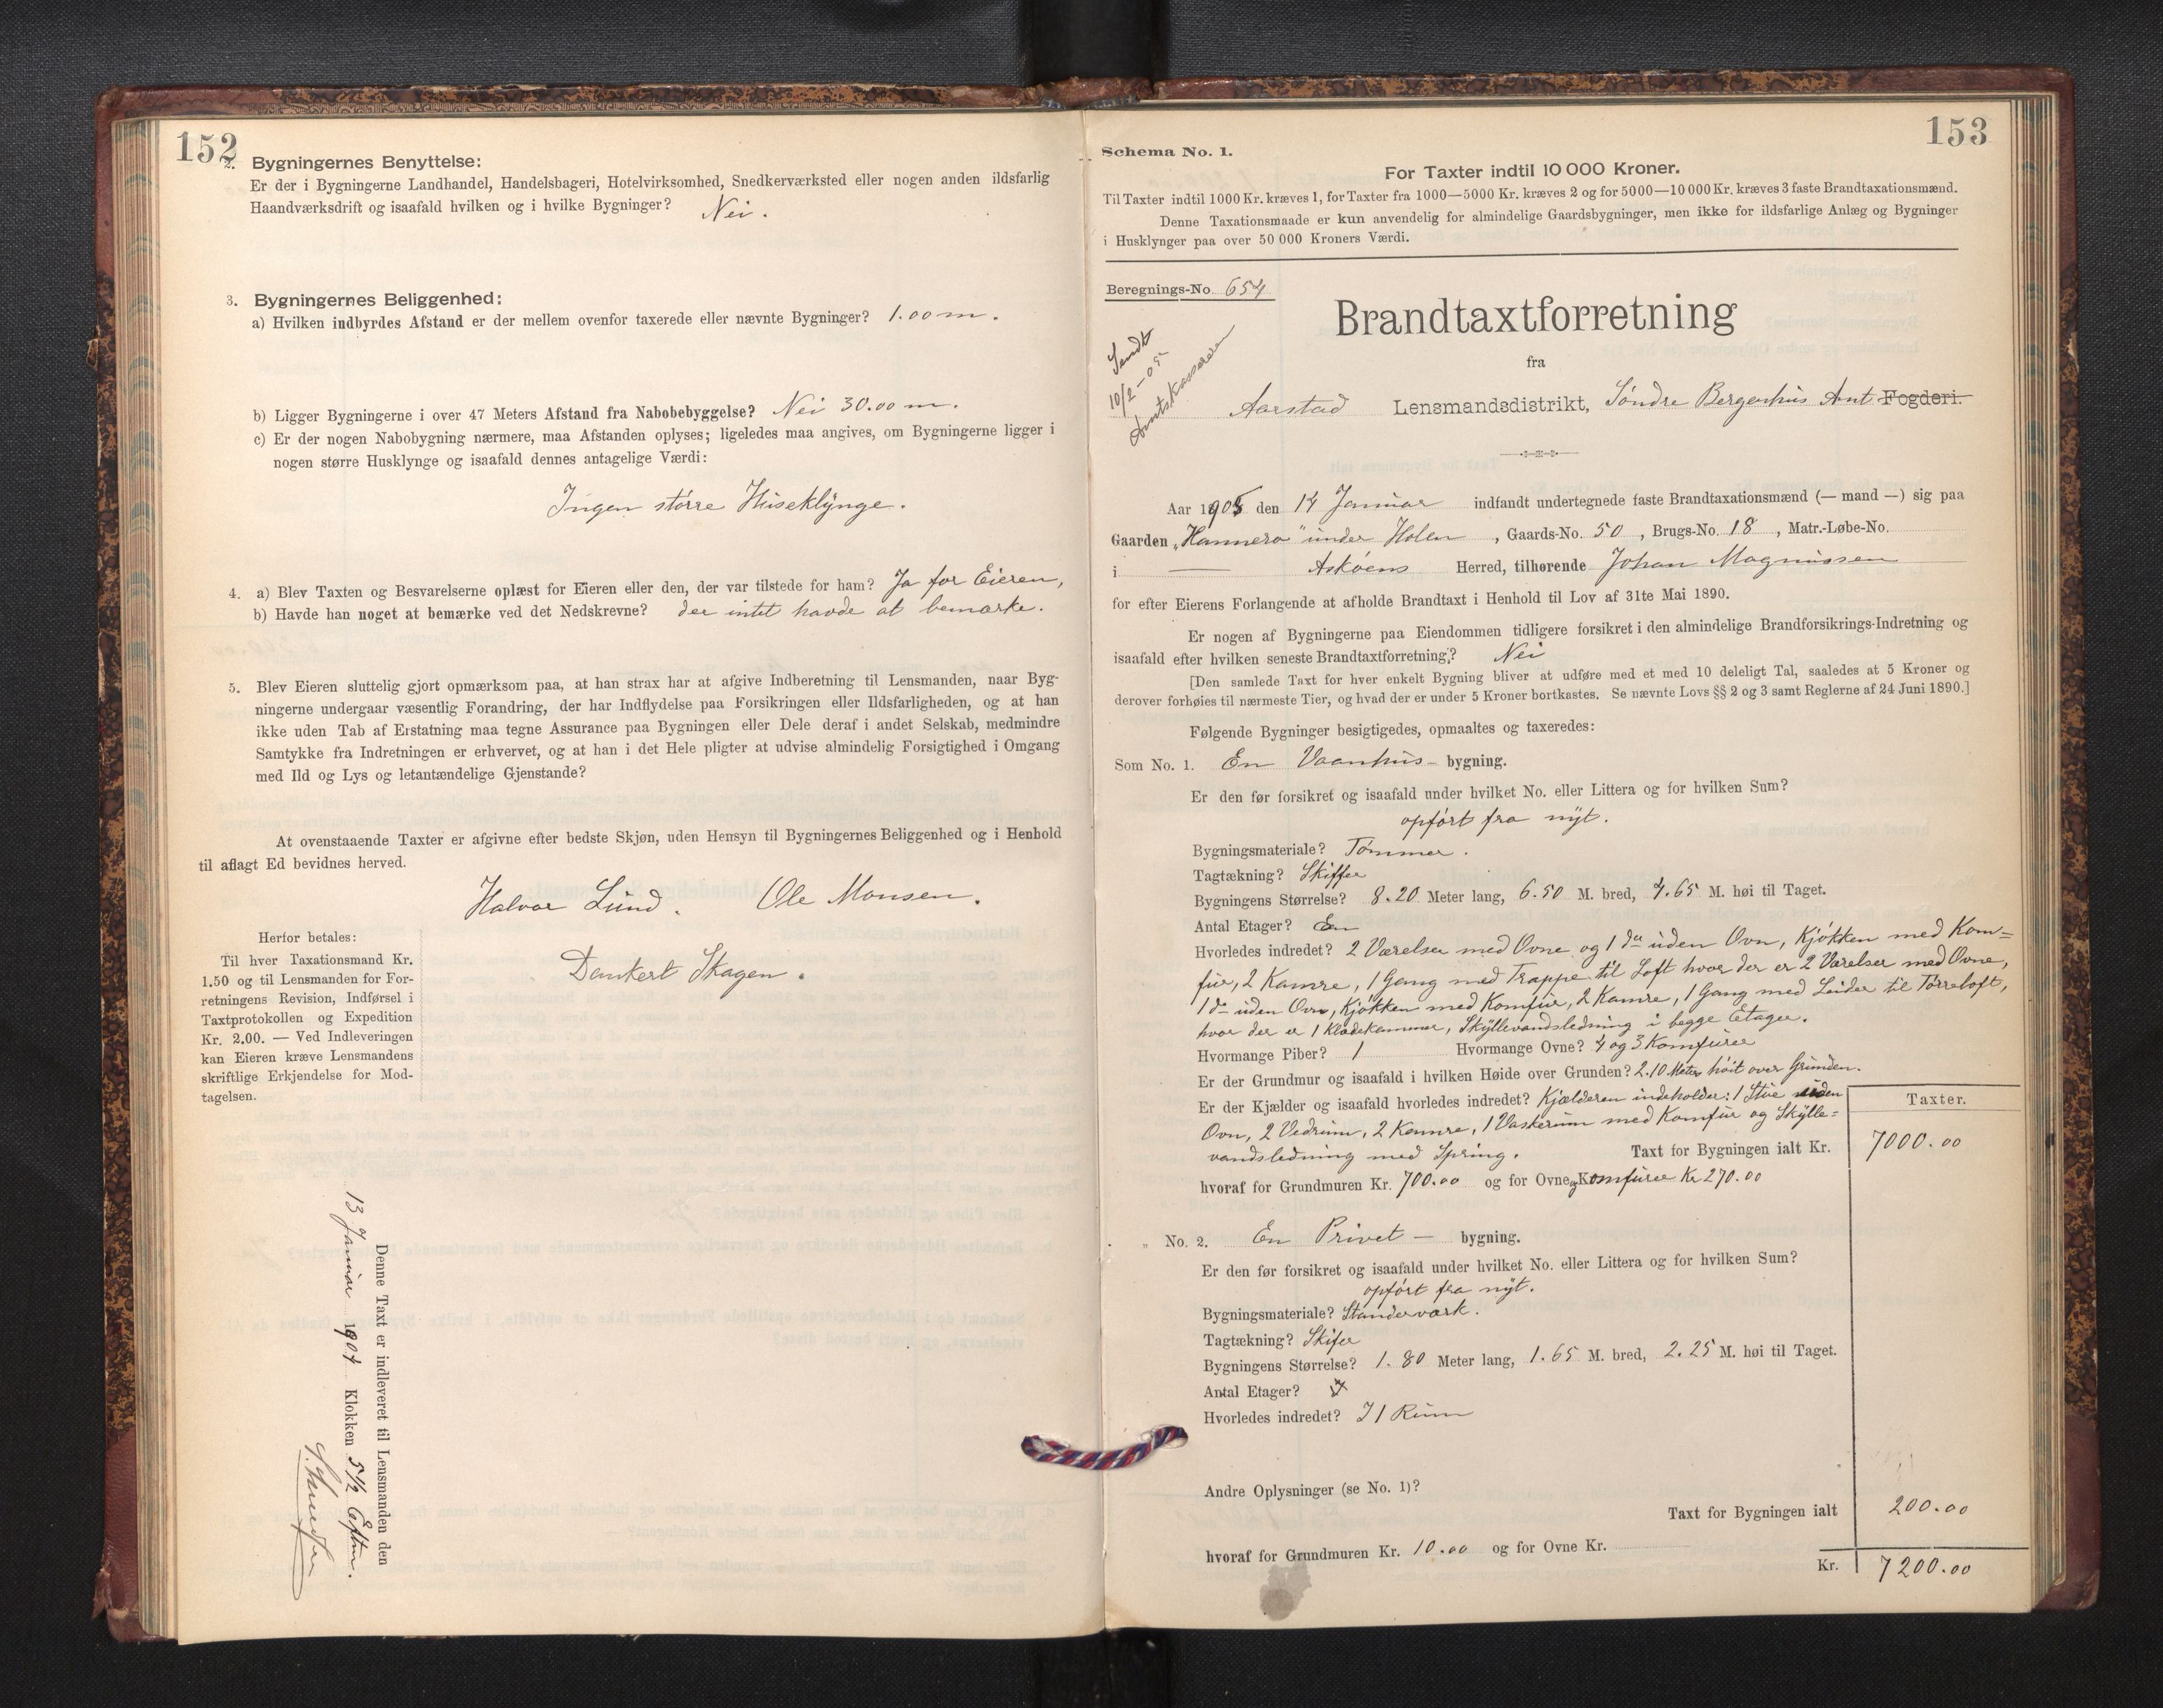 152
2. Bygningernes Benyttelse:
Er der i Bygningerne Landhandel, Handelsbageri, Hotelvirksomhed, Snedkerværksted eller nogen anden ildsfarlig
Haandværksdrift og isaafald hvilken og i hvilke Bygninger? Nei.
3. Bygningernes Beliggenhed:
a) Hvilken indbyrdes Afstand er der mellem ovenfor taxerede eller nævnte Bygninger? 1.00 m.
b) Ligger Bygningerne i over 47 Meters Afstand fra Nabobebyggelse? Nei 30.00 m.
c) Er der nogen Nabobygning nærmere, maa Afstanden oplyses; ligeledes maa angives, om Bygningerne ligger i
nogen større Husklynge og isaafald dennes antagelige Værdi:
Ingen större Huseklynge.
4. a) Blev Taxten og Besvarelserne oplæst for Eieren eller den, der var tilstede for ham? Ja for Eieren,
b) Havde han noget at bemærke ved det Nedskrevne? der intet havde at bemærke.
5. Blev Eieren sluttelig gjort opmærksom paa, at han strax har at afgive Indberetning til Lensmanden, naar Byg-
ningerne undergaar væsentlig Forandring, der har Indflydelse paa Forsikringen eller Ildsfarligheden, og at han
ikke uden Tab af Erstatning maa tegne Assurance paa Bygningen eller Dele deraf i andet Selskab, medmindre
Samtykke fra Indretningen er erhvervet, og at han i det Hele pligter at udvise almindelig Forsigtighed i Omgang
med Ild og Lys og letantændelige Gjenstande?
At ovenstaaende Taxter er afgivne efter bedste Skjøn, uden Hensyn til Bygningernes Beliggenhed og i Henhold
til aflagt Ed bevidnes herved.
Halvor Lund. Ole Monsen.
Dankert Skagen.
Herfor betales:
Til hver Taxationsmand Kr.
1.50 og til Lensmanden for For-
retningens Revision, Indførsel i
Taxtprotokollen og Expedition
Kr. 2.00. — Ved Indleveringen
kan Eieren kræve Lensmandens
skriftlige Erkjendelse for Mod-
tagelsen.
Denne Taxt er indleveret til Lensmanden den
13 Januar 1904 Klokken 5 1/2 Eftm.
153
Schema No. 1.
For Taxter indtil 10 000 Kroner.
Til Taxter indtil 1000 Kr. kræves 1, for Taxter fra 1000—5000 Kr. kræves 2 og for 5000—10 000 Kr. kræves 3 faste Brandtaxationsmænd.
Denne Taxationsmaade er kun anvendelig for almindelige Gaardsbygninger, men ikke for ildsfarlige Anlæg og Bygninger
i Husklynger paa over 50 000 Kroners Værdi.
Beregnings-No. 654
Sendt
10/2-05
Amtskassereren
Brandtaxtforretning
fra
Aarstad Lensmandsdistrikt, Söndre Bergenhus Amt Fogderi.
Aar 1905 den 14 Januar indfandt undertegnede faste Brandtaxationsmænd (— mand —) sig paa
Gaarden „Hannero" under Holen, Gaards-No. 50, Brugs-No. 18, Matr.-Løbe-No.
i — Asköens Herred, tilhørende Johan Magnussen
for efter Eierens Forlangende at afholde Brandtaxt i Henhold til Lov af 31te Mai 1890.
Er nogen af Bygningerne paa Eiendommen tidligere forsikret i den almindelige Brandforsikrings-Indretning og
isaafald efter hvilken seneste Brandtaxtforretning? Nei
[Den samlede Taxt for hver enkelt Bygning bliver at udføre med et med 10 deleligt Tal, saaledes at 5 Kroner og
derover forhøies til nærmeste Tier, og hvad der er under 5 Kroner bortkastes. Se nævnte Lovs §§ 2 og 3 samt Reglerne af 24 Juni 1890.]
Følgende Bygninger besigtigedes, opmaaltes og taxeredes:
Som No. 1. En Vaanhus- bygning.
Er den før forsikret og isaafald under hvilket No. eller Littera og for hvilken Sum?
opfört fra nyt.
Bygningsmateriale? Tömmer.
Tagtækning? Skiffer
Bygningens Størrelse? 8.20 Meter lang, 6.50 M. bred, 4.65 M. høi til Taget.
Antal Etager? En
Hvorledes indredet? 2 Værelser med Ovne og 1 do uden Ovn, Kjökken med Kom=
für, 2 Kamre, 1 Gang med Trappe til Loft hvor der er 2 Værelser med Ovne,
1 do uden Ovn, Kjökken med Komfür, 2 Kamre, 1 Gang med Leider til Törreloft,
hvor der er 1 Klædekammer, Skyllevandsledning i begge Etager.
Hvormange Piber? 1 Hvormange Ovne? 4 og 3 Komfürer
Er der Grundmur og isaafald i hvilken Høide over Grunden? 2.10 Meter höit over Grunden.
Er der Kjælder og isaafald hvorledes indredet? Kjælderen indeholder: 1 Stue uden
Ovn, 2 Vedrum, 2 Kamre, 1 Vaskerum med Komfür og Skylle=
vandsledning med Spring. Taxt for Bygningen ialt Kr.
Taxter.
7000.00
hvoraf for Grundmuren Kr. 700.00 og for Ovne og Komfürer Kr 270.00
„ No. 2. En Privet — bygning.
Er den før forsikret og isaafald under hvilket No. eller Littera og for hvilken Sum?
opfört fra nyt.
Bygningsmateriale? Standerværk.
Tagtækning? Skifer
Bygningens Størrelse? 1.80 Meter lang, 1.65 M. bred, 2.25 M. høi til Taget.
Antal Etager?
Hvorledes indredet? I 1 Rum
Andre Oplysninger (se No. 1)?
Taxt for Bygningen ialt 200.00
hvoraf for Grundmuren Kr. 10.00 og for Ovne Kr.
Kr. 7200.00